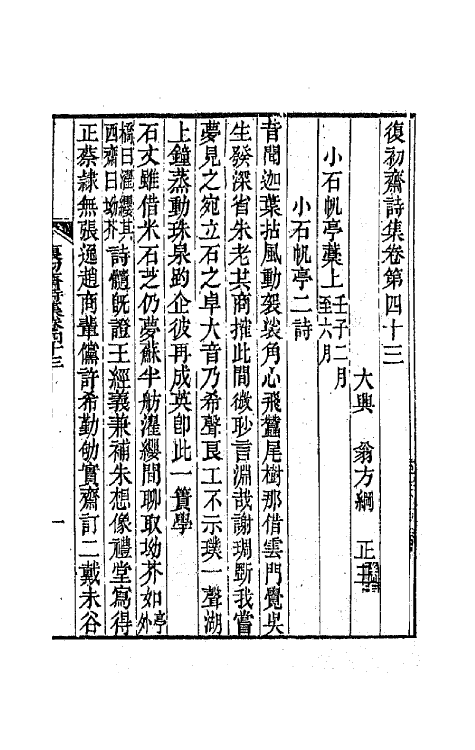 復初齋詩集卷第四十三
大興 翁方綱 正三
小石帆亭藳上壬子二月至六月
小石帆亭二詩
昔聞迦葉拈風動袈裟角心飛麈尾樹那借雲門覺吳
生發深省朱老共商搉此間微眇言淵哉謝琱斲我嘗
夢見之宛立石之卓大音乃希聲良工不示璞一聲湖
上鐘蒸動珠泉趵企彼再成英卽此一簣學
石丈雖借米石芝仍夢蘇半舫濯纓間聊取坳芥如亭外
橋曰濯纓其西齋曰坳芥詩髓旣證王經義兼補朱想像禮堂寫得
正蔡隷無張逸趙商輩儻許希勤劬實齋訂二戴未谷
復初齋詩集卷四十三
一